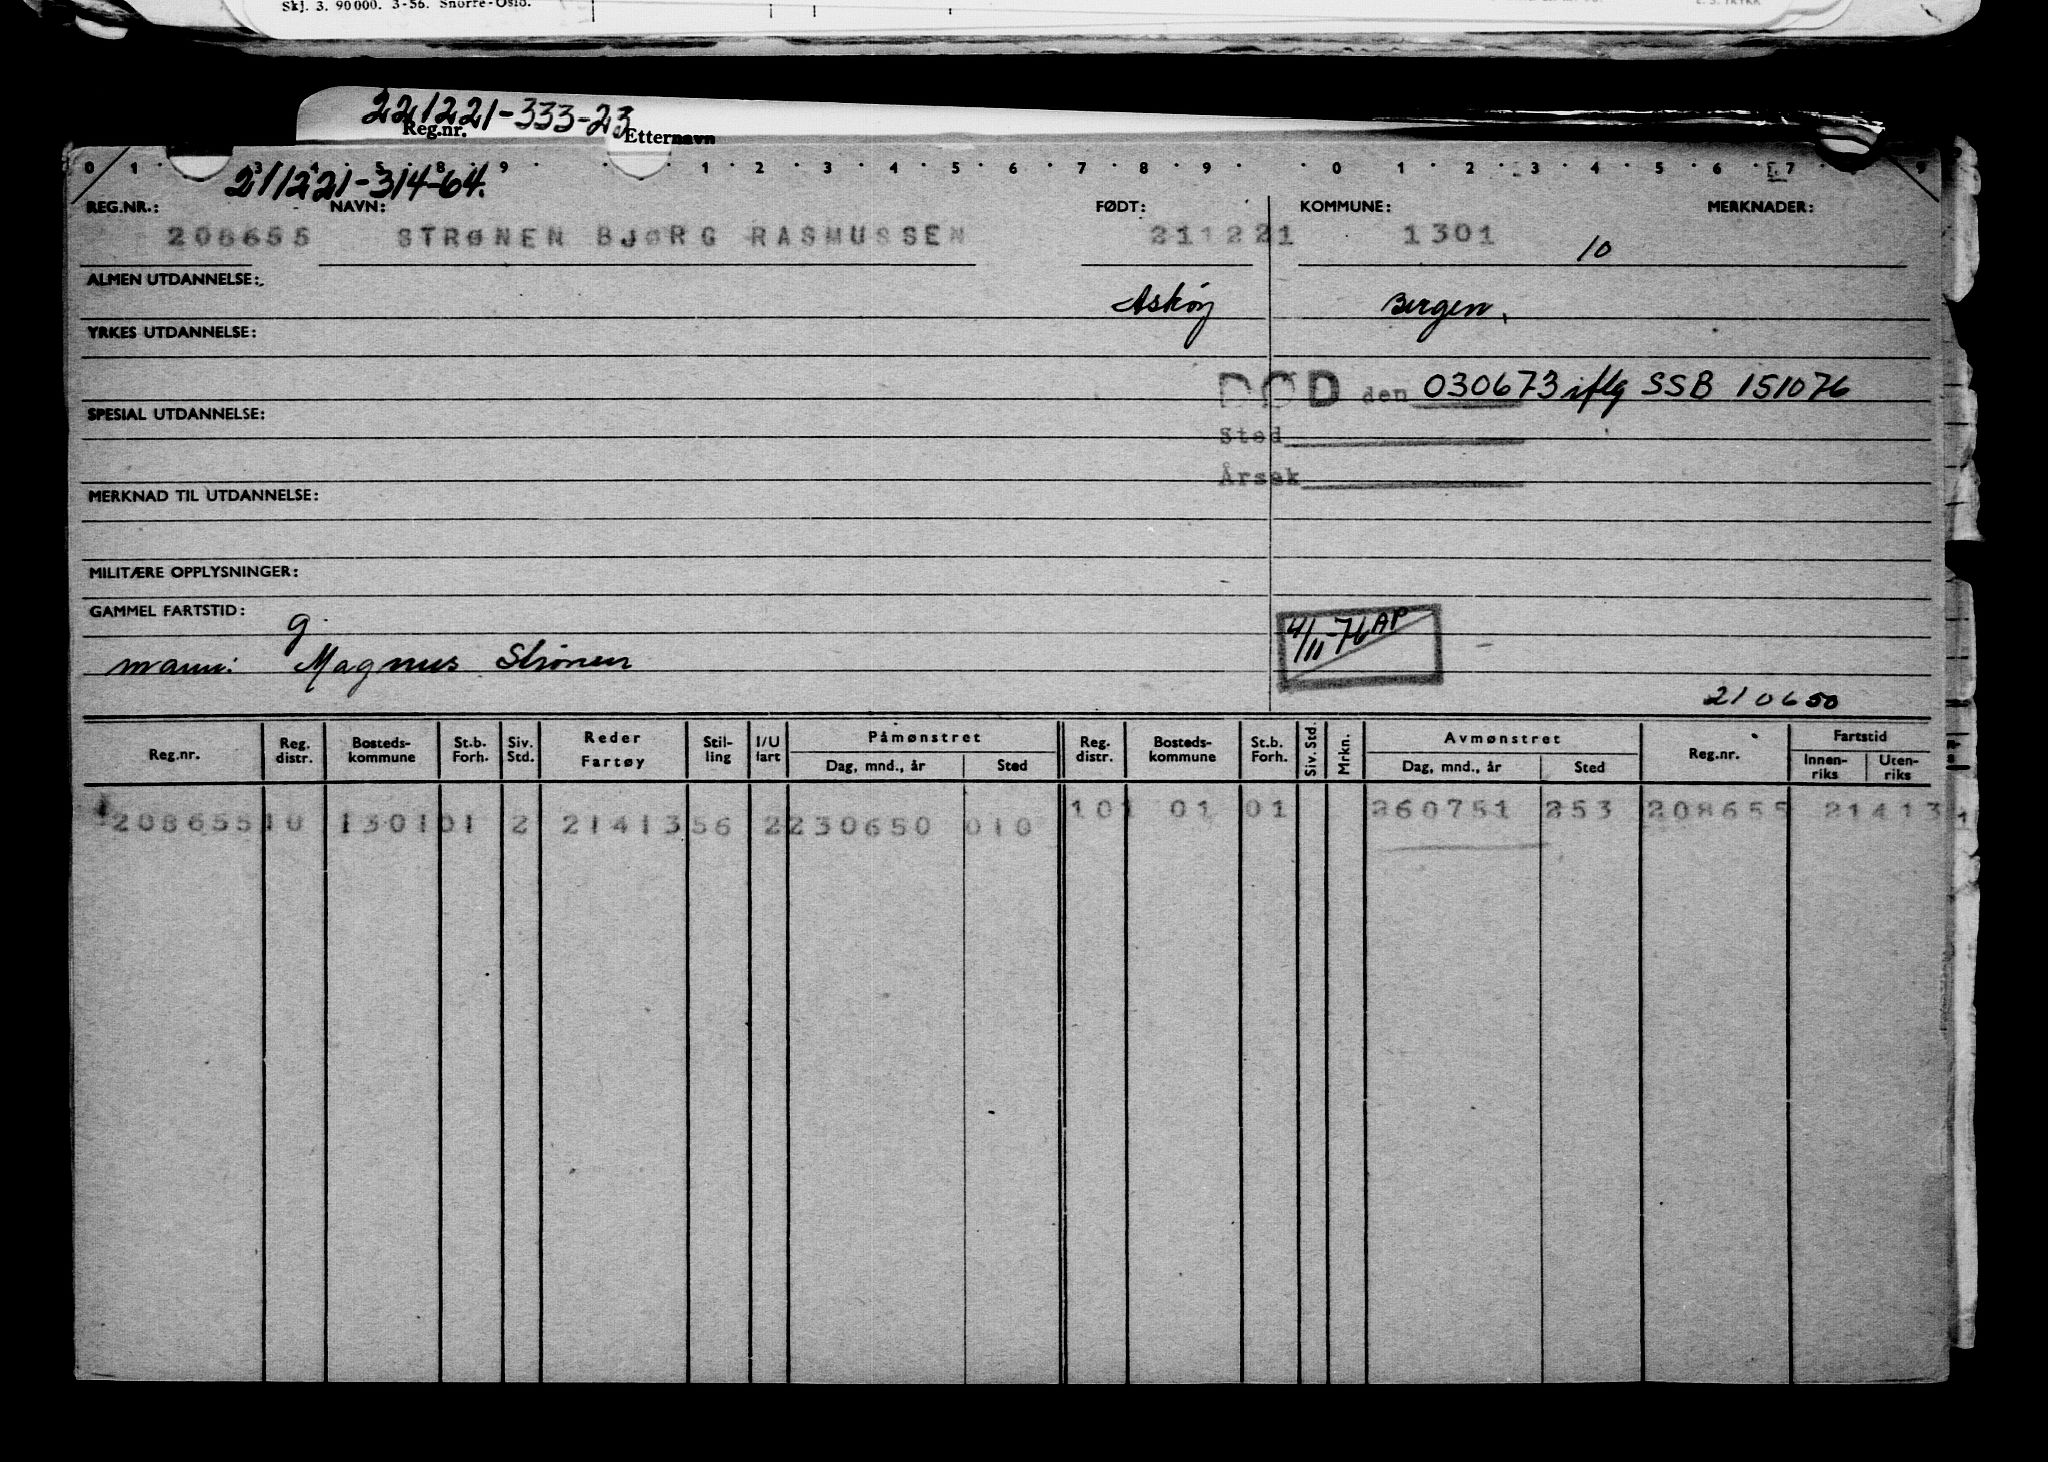 Skj. 3. 90000. 3-56. Snorre-Oslo.
221221-333-23
Reg.nr. Etternavn
0 1 3 4 5 8 9 1 2 3 4 5 6 7 8 9 0 1 2 3 4 5 6 7 9
211221-314-64.
REG.NR.: NAVN: FØDT: KOMMUNE: MERKNADER:
208655 STRØNEN BJØRG RASMUSSEN 211221 1301 10
ALMEN UTDANNELSE:
Askøy Bergen.
YRKES UTDANNELSE:
DØD den 030673 iflg SSB 151076
SPESIAL UTDANNELSE:
Sted
Årsak
MERKNAD TIL UTDANNELSE:
MILITÆRE OPPLYSNINGER:
GAMMEL FARTSTID:
g.
4/11-76 AP
mann: Magnus Strønen
210650
Reg.nr. Reg. distr. Bosteds-kommune St.b. Forh. Siv. Std. Reder Fartøy Stil-ling I/U fart Påmønstret Dag, mnd., år Sted Reg. distr. Bosteds-kommune St.b. Forh. Siv. Std. Mrkn. Avmønstret Dag, mnd., år Sted Reg.nr. Fartstid Innen-riks Uten-riks
208655 10 1301 01 2 21413 56 2 230650 010 101 01 01 260751 253 208655 21413 1